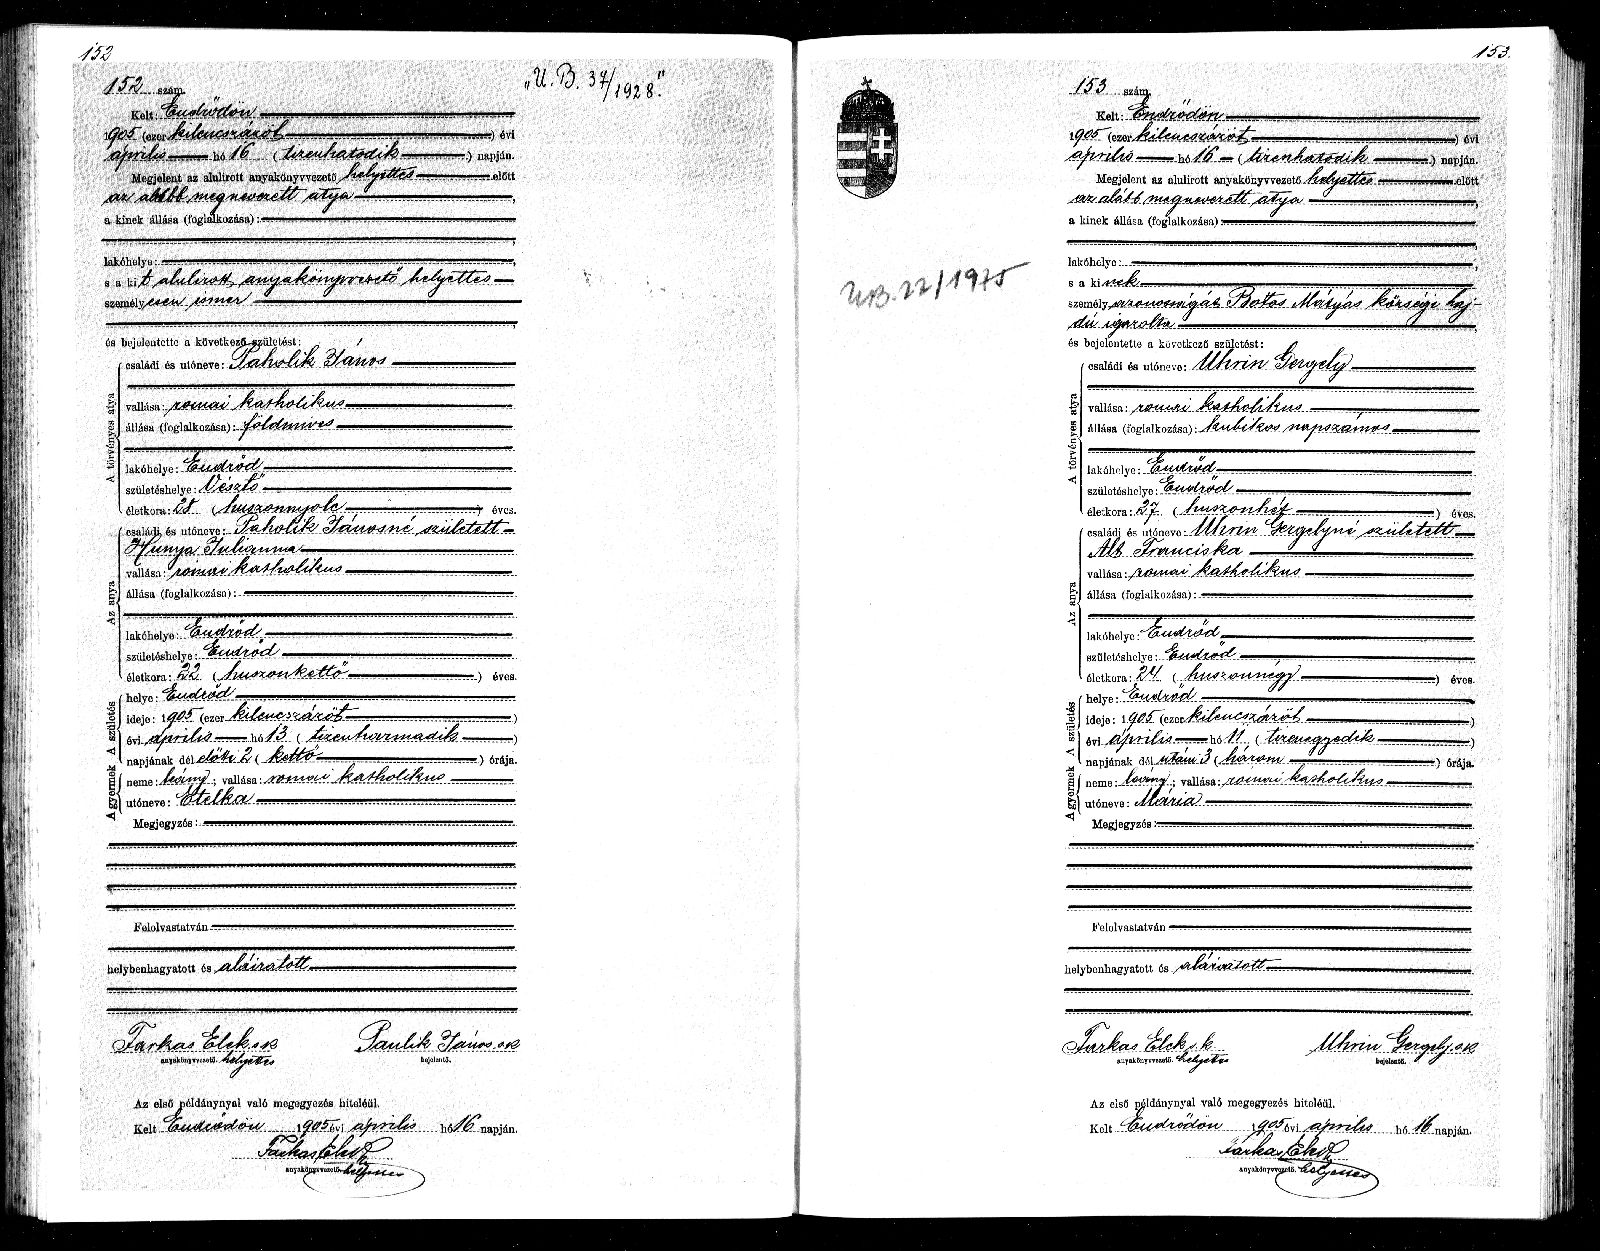 152
152 szám.
„U. B. 37/1928."
Kelt: Endrődön
1905 (ezer kilencszázöt) évi
április hó 16 (tizenhatodik) napján.
Megjelent az alulirott anyakönyvvezető helyettes előtt
az alább megnevezett atya,
a kinek állása (foglalkozása):
lakóhelye:
s a kit alulirott anyakönyvvezető helyettes
személyesen ismer
és bejelentette a következő születést:
A törvényes atya
családi és utóneve: Paholik János
vallása: romai katholikus
állása (foglalkozása): földmives
lakóhelye: Endrőd
születéshelye: Vésztő
életkora: 28 (huszonnyolc) éves.
Az anya
családi és utóneve: Paholik Jánosné született
Hunya Julianna
vallása: romai katholikus
állása (foglalkozása):
lakóhelye: Endrőd
születéshelye: Endrőd
életkora: 22 (huszonkettő) éves.
A születés
helye: Endrőd
ideje: 1905 (ezer kilencszázöt)
évi április hó 13 (tizenharmadik)
napjának dél előtti 2 (kettő) órája.
A gyermek
neme: leány; vallása: romai katholikus
utóneve: Etelka
Megjegyzés:
Felolvastatván
helybenhagyatott és aláiratott
Farkas Elek s.k. Paulik János s.k.
anyakönyvvezető. helyettes bejelentő.
Az első példánynyal való megegyezés hiteléül.
Kelt Endrődön 1905 évi április hó 16 napján.
Farkas Elek
anyakönyvvezető. helyettes
153.
153 szám.
U.B. 22/1975
Kelt: Endrődön
1905 (ezer kilencszázöt) évi
április hó 16 (tizenhatodik) napján.
Megjelent az alulirott anyakönyvvezető helyettes előtt
az alább megnevezett atya,
a kinek állása (foglalkozása):
lakóhelye:
s a kinek
személyazonosságát Botos Mátyás községi haj-
dú igazolta
és bejelentette a következő születést:
A törvényes atya
családi és utóneve: Uhrin Gergely
vallása: romai katholikus
állása (foglalkozása): kubikos napszámos
lakóhelye: Endrőd
születéshelye: Endrőd
életkora: 27 (huszonhét) éves.
Az anya
családi és utóneve: Uhrin Gergelyné született
Alt Franciska
vallása: romai katholikus
állása (foglalkozása):
lakóhelye: Endrőd
születéshelye: Endrőd
életkora: 24 (huszonnégy) éves.
A születés
helye: Endrőd
ideje: 1905 (ezer kilencszázöt)
évi április hó 11 (tizenegyedik)
napjának dél után 3 (három) órája.
A gyermek
neme: leány; vallása: romai katholikus
utóneve: Mária
Megjegyzés:
Felolvastatván
helybenhagyatott és aláiratott
Farkas Elek s.k. Uhrin Gergely s.k.
anyakönyvvezető. helyettes bejelentő.
Az első példánynyal való megegyezés hiteléül.
Kelt Endrődön 1905 évi április hó 16 napján.
Farkas Elek
anyakönyvvezető. helyettes